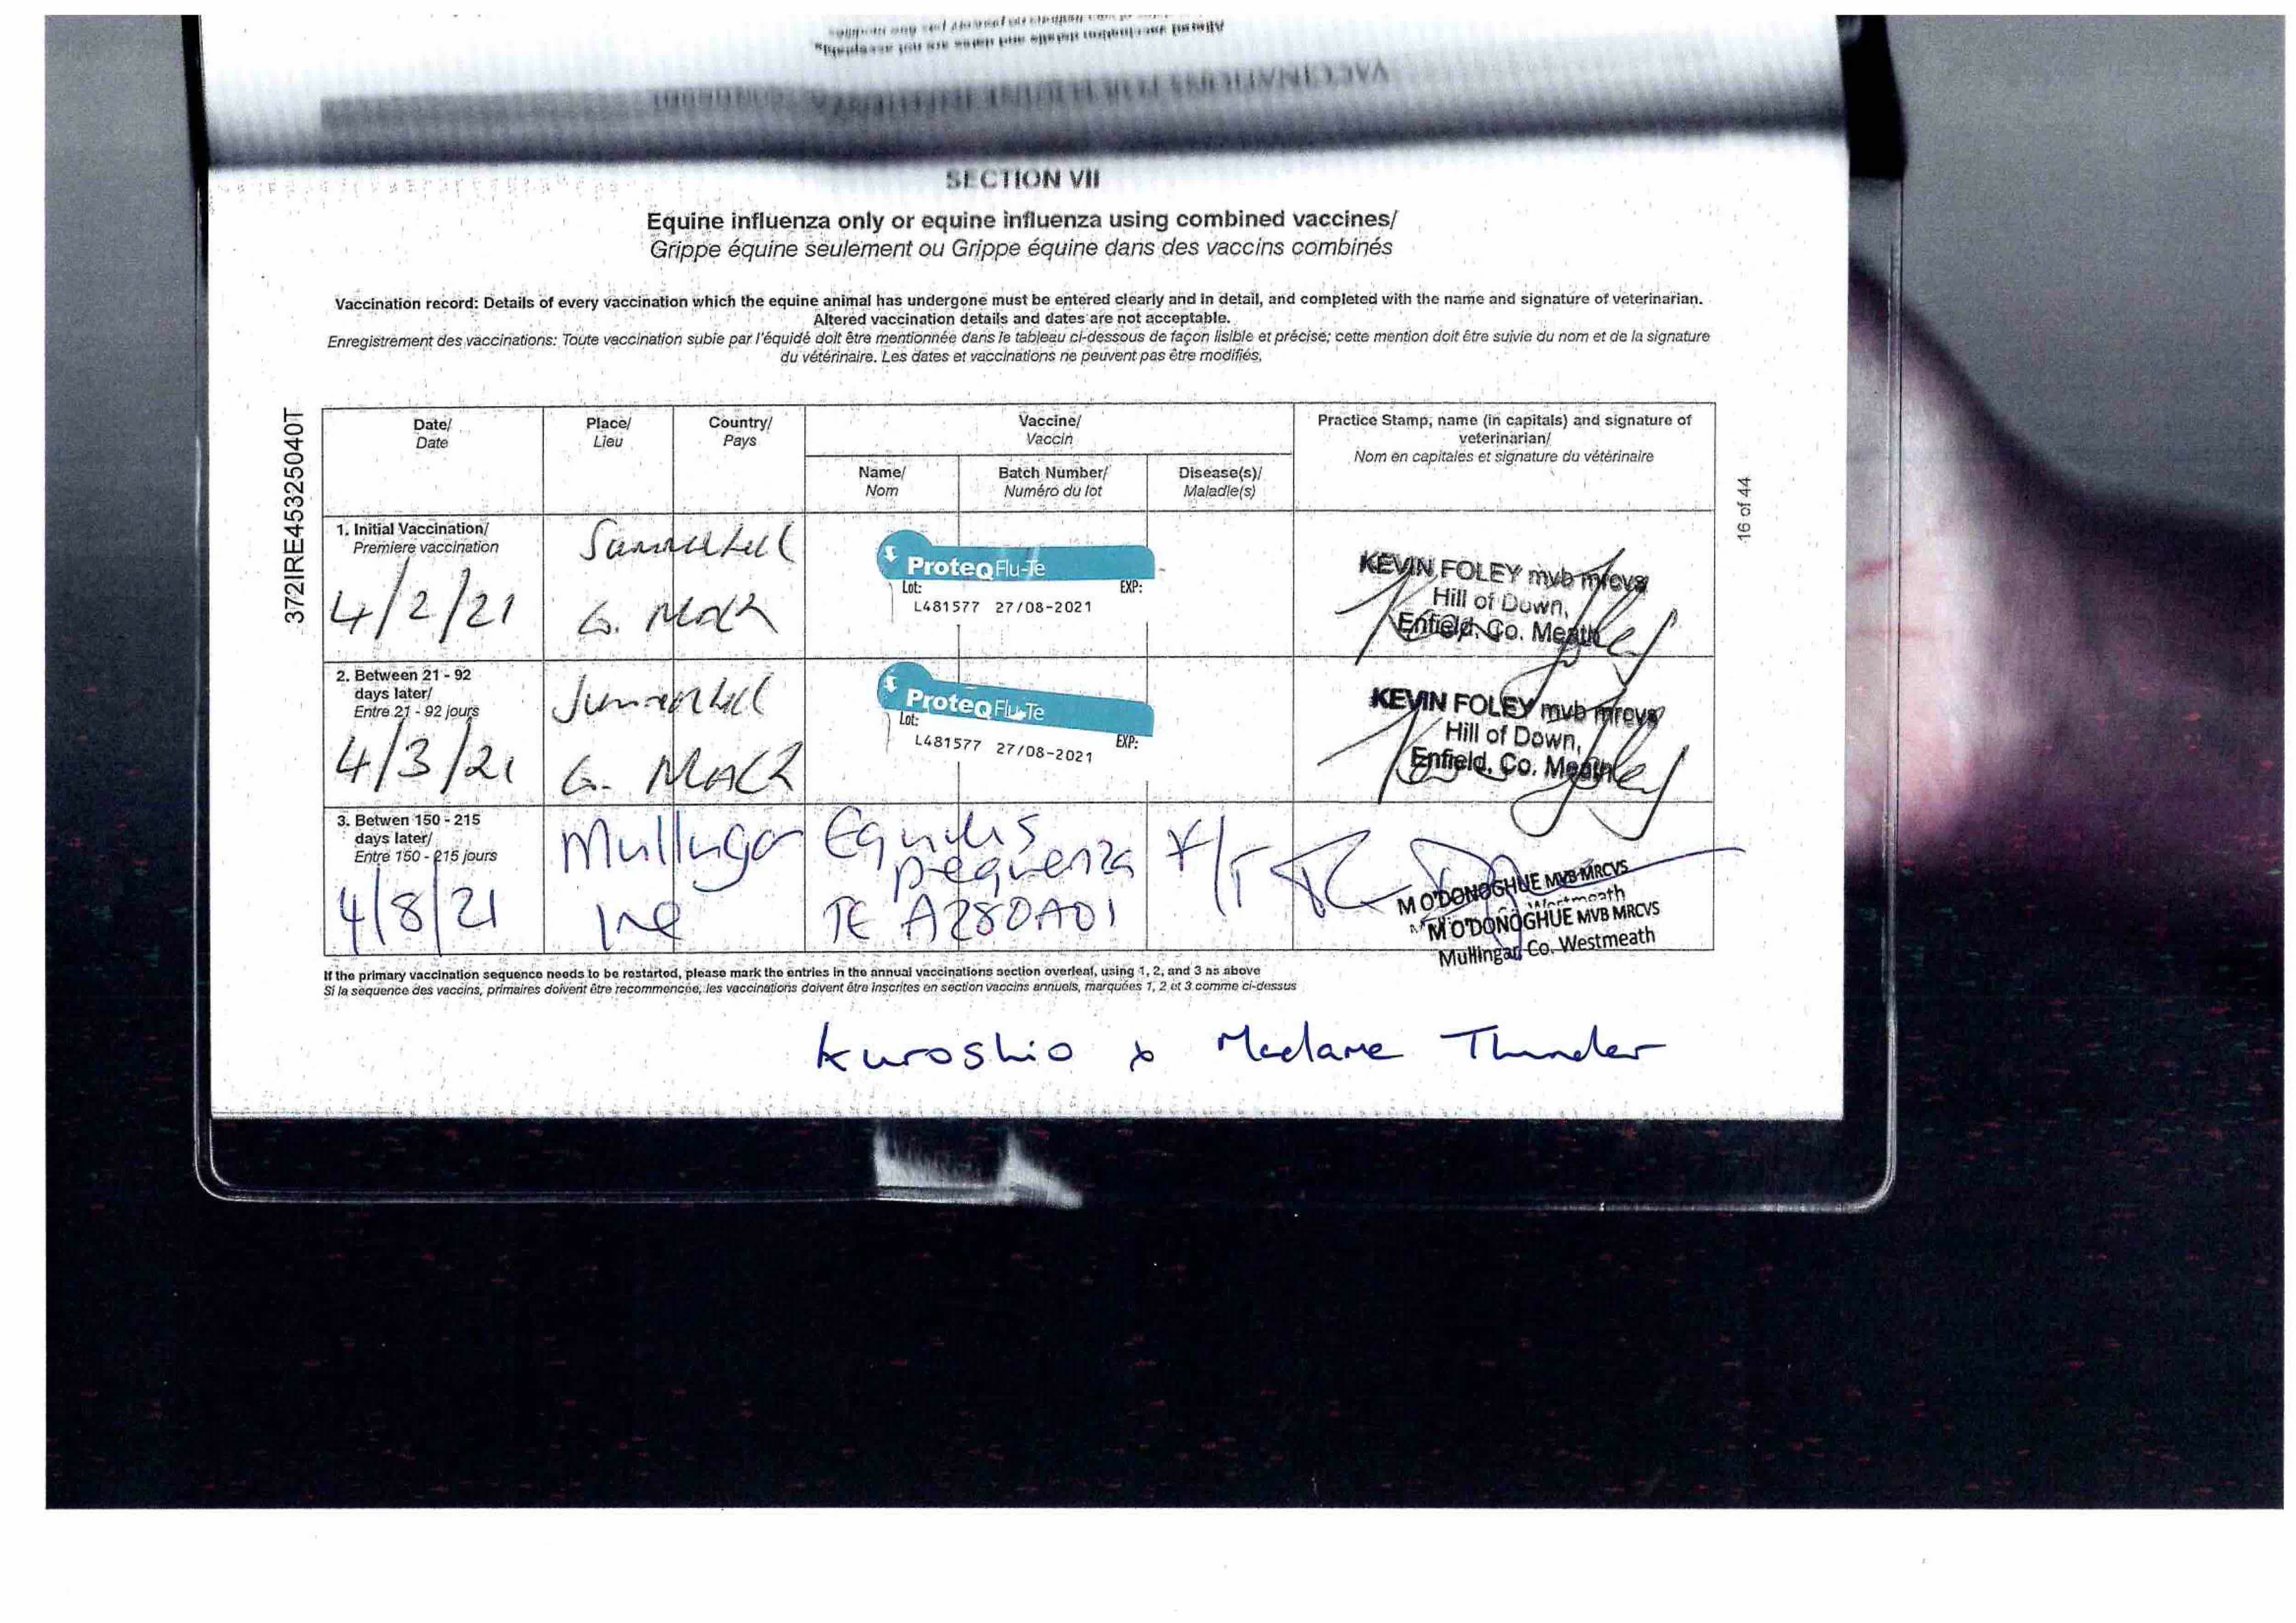 SECTION VII
Equine influenza only or equine influenza using combined vaccines/
Grippe équine seulement ou Grippe équine dans des vaccins combinés
Vaccination record: Details of every vaccination which the equine animal has undergone must be entered clearly and in detail, and completed with the name and signature of veterinarian.
Altered vaccination details and dates are not acceptable.
Enregistrement des vaccinations: Toute vaccination subie par l'équidé doit être mentionnée dans le tableau ci-dessous de façon lisible et précise; cette mention doit être suivie du nom et de la signature
du vétérinaire. Les dates et vaccinations ne peuvent pas être modifiés.
372IRE45325040T
16 of 44
Date/ Place/ Country/ Vaccine/ Practice Stamp, name (in capitals) and signature of
Date Lieu Pays Vaccin veterinarian/
Nom en capitales et signature du vétérinaire
Name/ Batch Number/ Disease(s)/
Nom Numéro du lot Maladie(s)
1. Initial Vaccination/
Premiere vaccination
4/2/21
ProteqFlu-Te
Lot: EXP:
L481577 27/08-2021
KEVIN FOLEY mvb mrcvs
Hill of Down,
Enfield, Co. Meath
2. Between 21 - 92
days later/
Entre 21 - 92 jours
4/3/21
ProteqFlu-Te
Lot: EXP:
L481577 27/08-2021
KEVIN FOLEY mvb mrcvs
Hill of Down,
Enfield, Co. Meath
3. Betwen 150 - 215
days later/
Entre 150 - 215 jours
4/8/21
Mullingar
Ire
Equilis
prequenza
TE A280A01
F/T
M O'DONOGHUE MVB MRCVS
Westmeath
M O'DONOGHUE MVB MRCVS
Mullingar, Co. Westmeath
If the primary vaccination sequence needs to be restarted, please mark the entries in the annual vaccinations section overleaf, using 1, 2, and 3 as above
Si la sequence des vaccins, primaires doivent être recommencée, les vaccinations doivent être inscrites en section vaccins annuels, marquées 1, 2 et 3 comme ci-dessus
Kuroshio x Madame Thunder